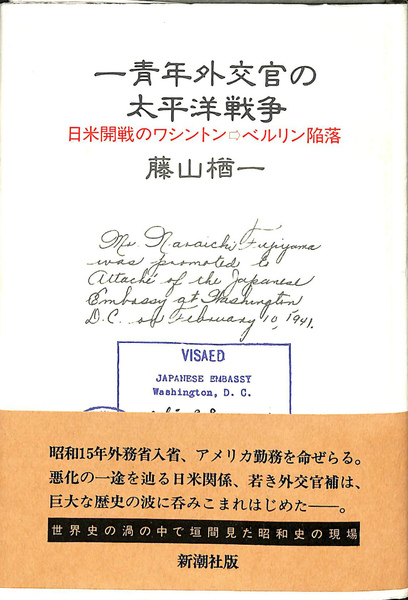 一青年外交官の
太平洋戦争
日米開戦のワシントン⇨ベルリン陥落
藤山楢一
Mr. Naraichi Fujiyama
was promoted to
Attaché of the Japanese
Embassy at Washington
D.C. on February 10, 1941.
VISAED
JAPANESE EMBASSY
Washington, D. C.
昭和15年外務省入省、アメリカ勤務を命ぜらる。
悪化の一途を辿る日米関係、若き外交官補は、
巨大な歴史の波に呑みこまれはじめた——。
世界史の渦の中で垣間見た昭和史の現場
新潮社版